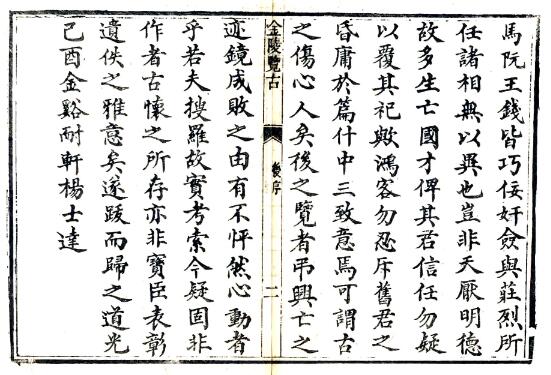 馬阮王錢皆巧佞奸僉與莊烈所
任諸相無以異也豈非天厭明德
故多生亡國才俾其君信任勿疑
以覆其祀歟鴻客勿忍斥舊君之
昏庸於篇什中三致意焉可謂古
之傷心人矣後之覽者弔興亡之
金陵覽古
後序
二
迹鏡成敗之由有不怦然心動者
乎若夫搜羅故實考索今疑固非
作者古懷之所存亦非寶臣表彰
遺佚之雅意矣遂跋而歸之道光
己酉金谿耐軒楊士達